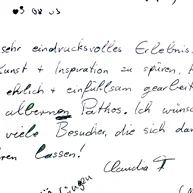 us
sehr eindrucksvolles Erlebnis.
Kunst + Inspiration zu spüren,
ehrlich + einfühlsam gearbeit
albernen Pathos. Ich wünsc
viele Besucher, die sich dar
ren lassen!
Claudia F